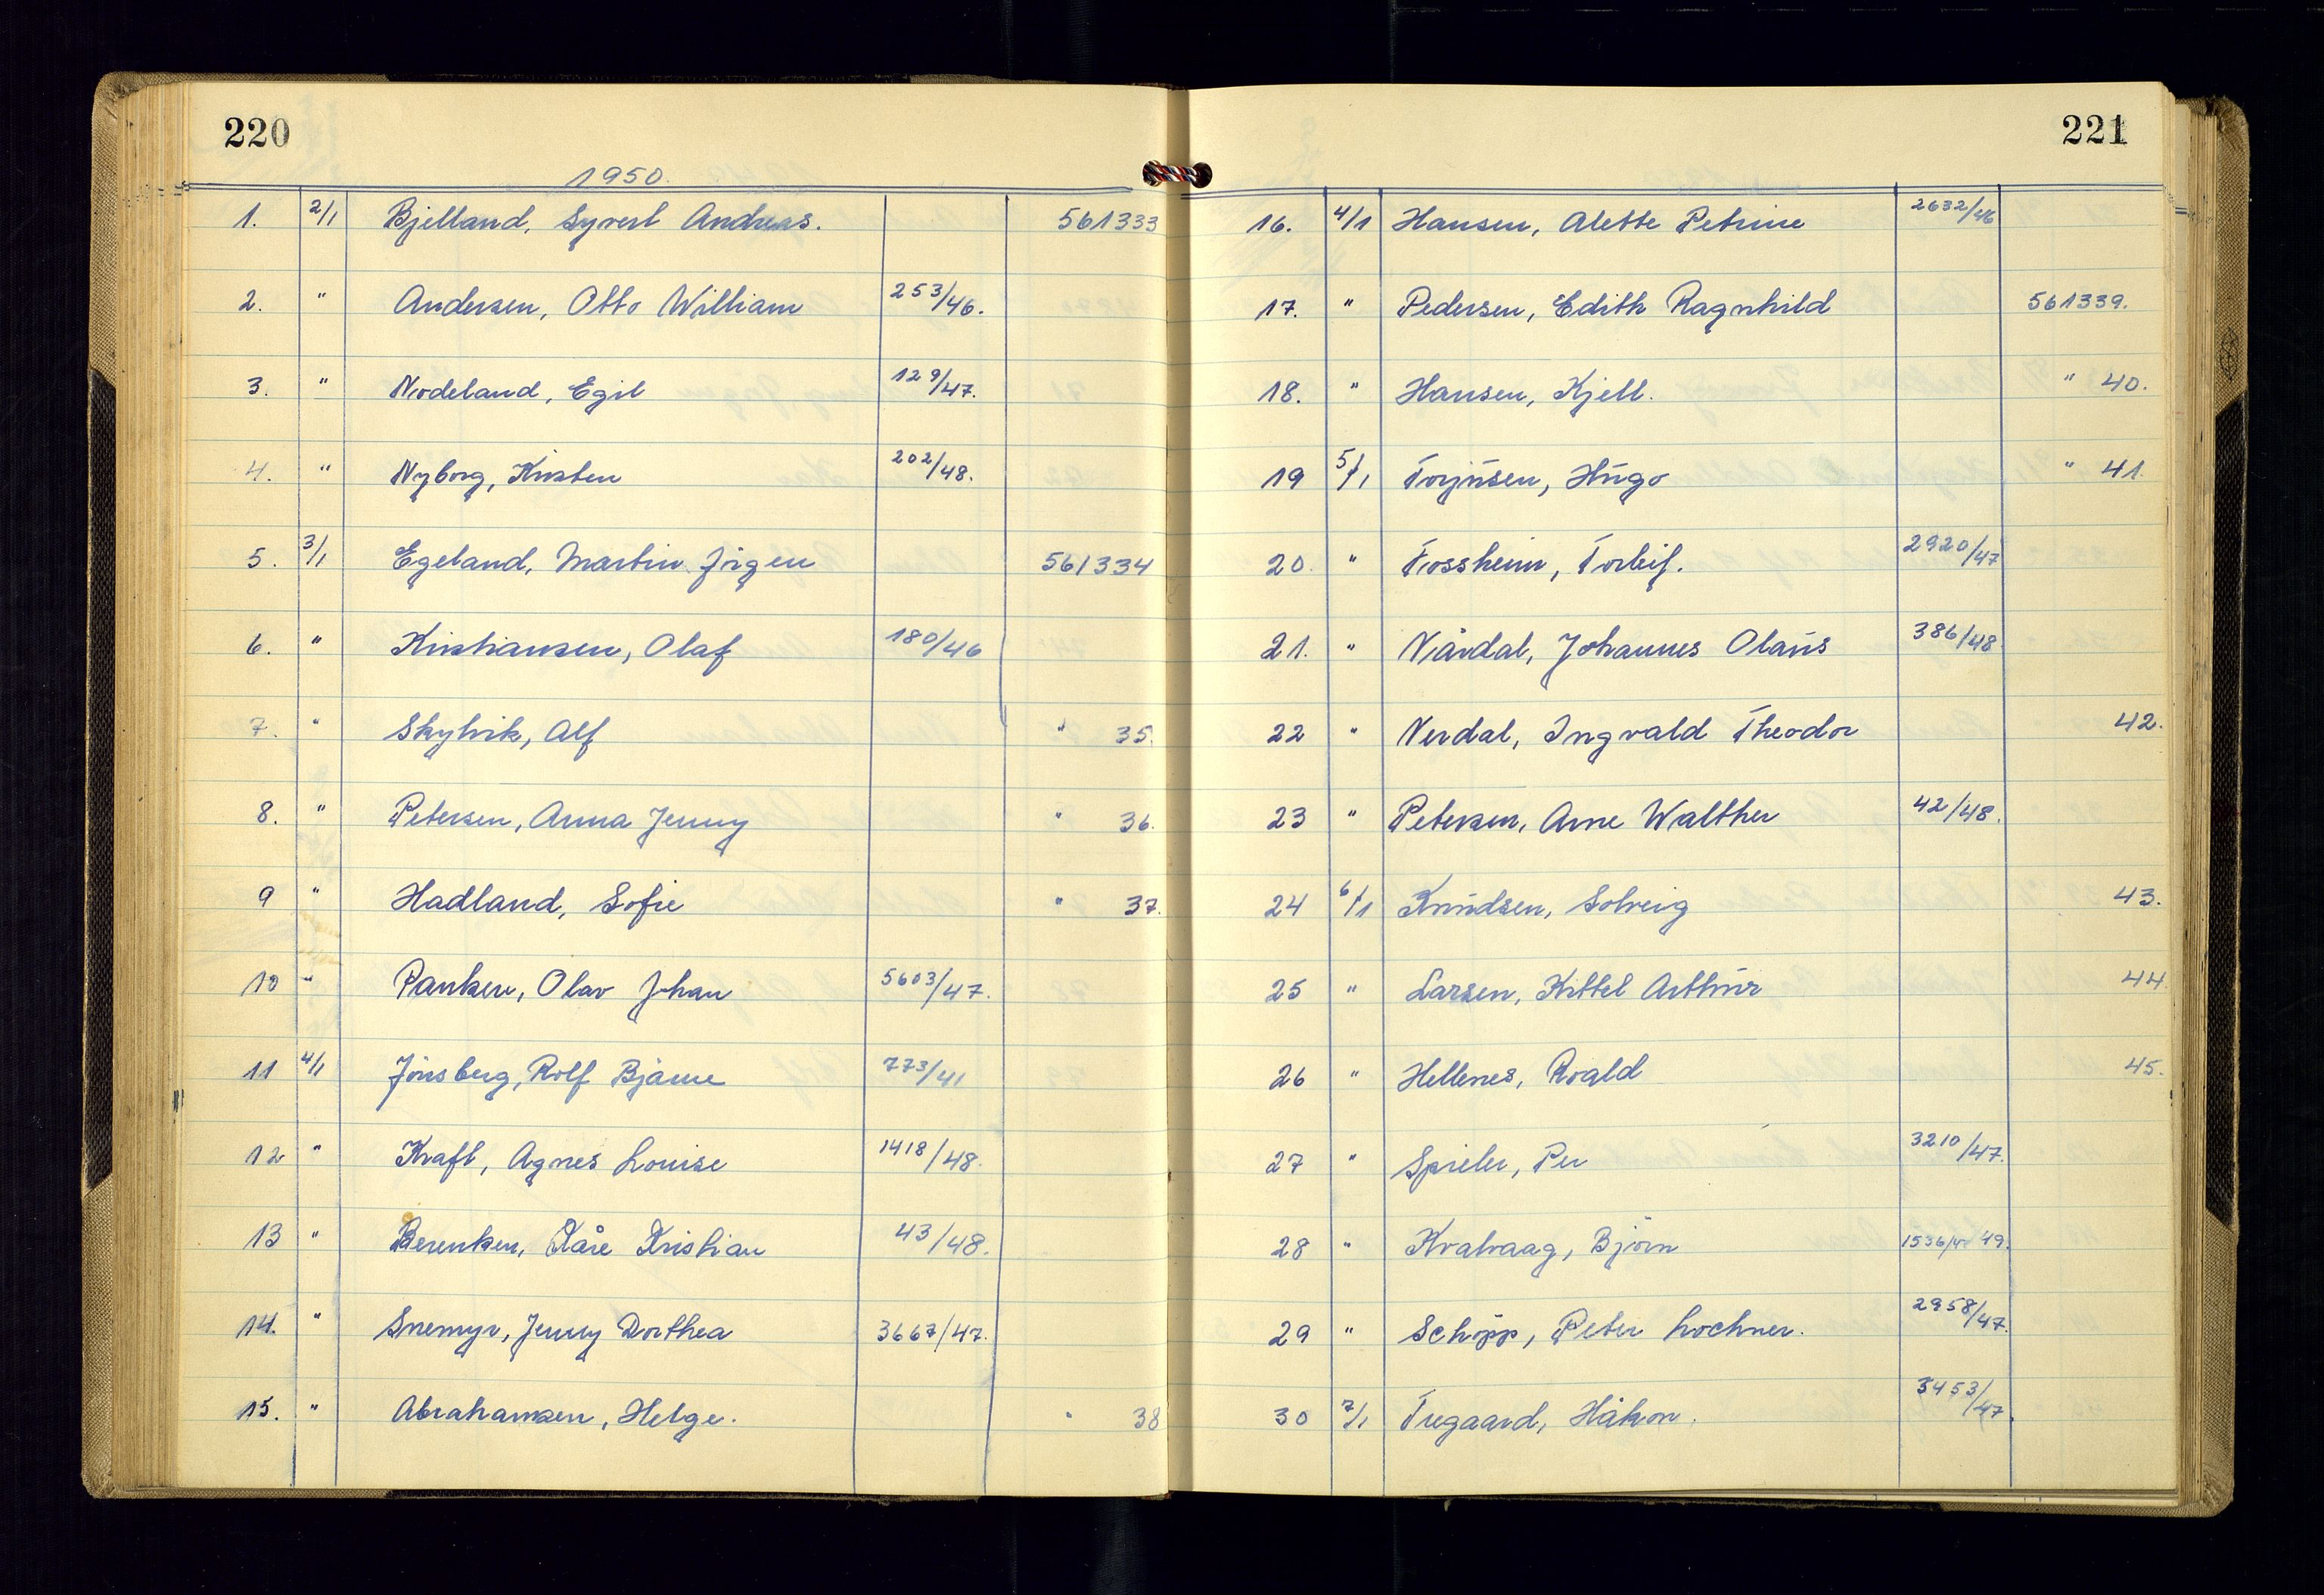 220
1950.
1. 2/1 Bjelland, Syvert Andreas. 561333
2. " Andersen, Otto William 253/46.
3. " Nodeland, Egil 129/47.
4. " Nyborg, Kirsten 202/48.
5. 3/1 Egeland, Martin Jörgen 561334
6. " Kristiansen, Olaf 180/46
7. " Skylvik, Alf " 35.
8. " Petersen, Anna Jenny " 36.
9 " Hadland, Sofie " 37.
10 " Olav Johan 5603/47.
11 4/1 Jönsberg, Rolf Bjarne 773/41
12 " Kraft, Agnes Louise 1418/48.
13 " Berentsen, Kåre Kristian 43/48.
14. " Snemyr, Jenny Dorthea 3667/47.
15. " Abrahamsen, Helge. " 38
221
16. 4/1 Hansen, Alette Petrine 2632/46
17. " Pedersen, Edith Ragnhild 561339.
18. " Hansen, Kjell. " 40.
19 5/1 Torjusen, Hugo " 41.
20. " Fossheim, Torleif. 2920/47
21. " Nårdal, Johannes Olaus 386/48
22 " Nerdal, Ingvald Theodor 42.
23 " Petersen, Arne Walther 42/48.
24 6/1 Knudsen, Solveig 43.
25 " Larsen, Kittel Arthur 44
26 " Hellenes, Roald 45.
27 " Spieler, Per 3210/47.
28 " Kvalvaag, Björn 1536/ 49.
29 " Schöpp, Peter Lochner. 2958/47.
30 7/1 Tregaard, Håkon. 3453/47.